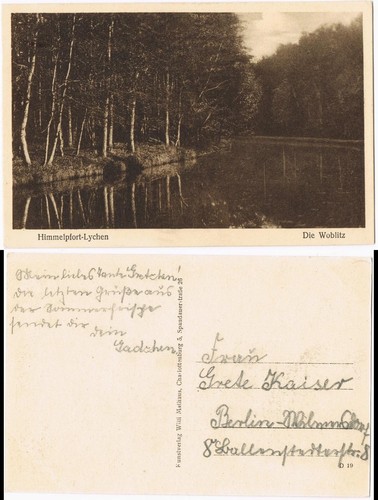 Himmelpfort-Lychen
Die Woblitz
Mein liebes Tante Gretchen!
die letzten Grüße aus
der Sommerfrische
sendet dir
dein
Kunstverlag Willi Charlottenburg 5, Spandauerstraße 26
Frau
Grete Kaiser
Berlin-Wilmersdorf
Ballenstedterstr. 8
D 19